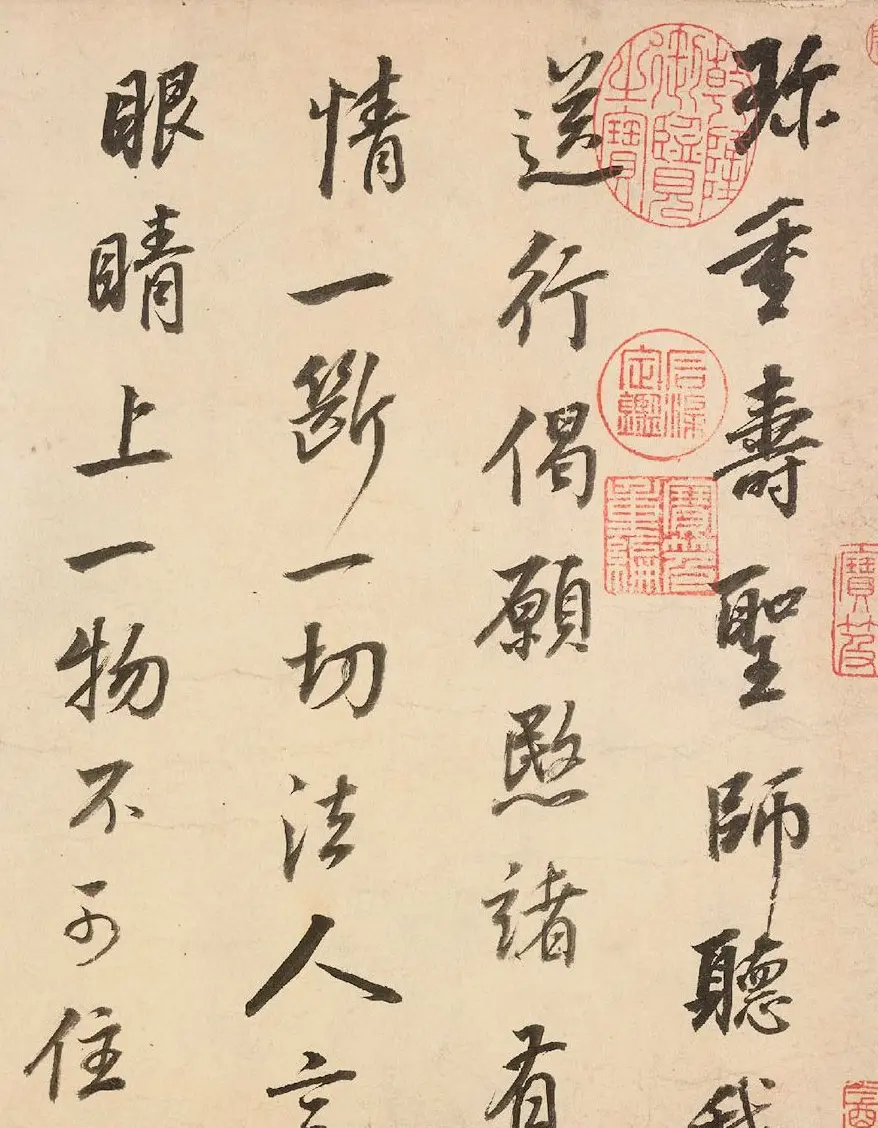 珎重壽聖師聽我
送行偈願愍諸有
情一斷一切法人言
眼睛上一物不可住
乾隆御覽之寶
石渠定鑑
寶笈重編
寶笈